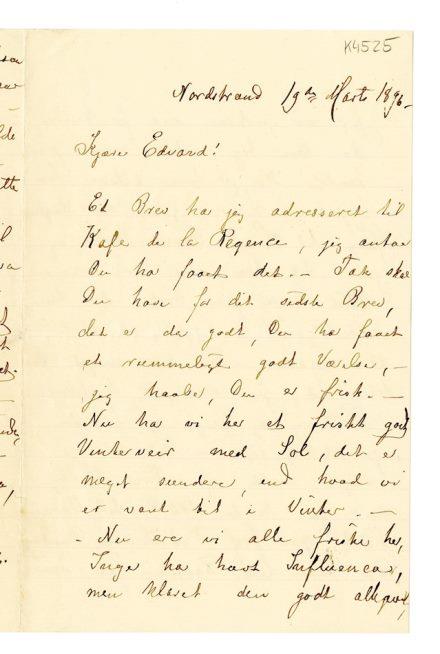 K4525
Nordstrand 19de Marts 1896
Kjære Edvard!
Et Brev har jeg adresseret til
Kafe de la Regence, jeg antar
Du har faaet det. – Tak skal
Du have for dit sidste Brev,
det er da godt, Du har faaet
et rummeligt godt Værelse, –
jeg haaber, Du er frisk. –
Nu har vi her et friskt godt
Vinterveir med Sol, det er
meget sundere, end hvad vi
er vant til i Vinter. –
– Nu ere vi alle friske her,
Inger har havt Influenca,
men klaret den godt